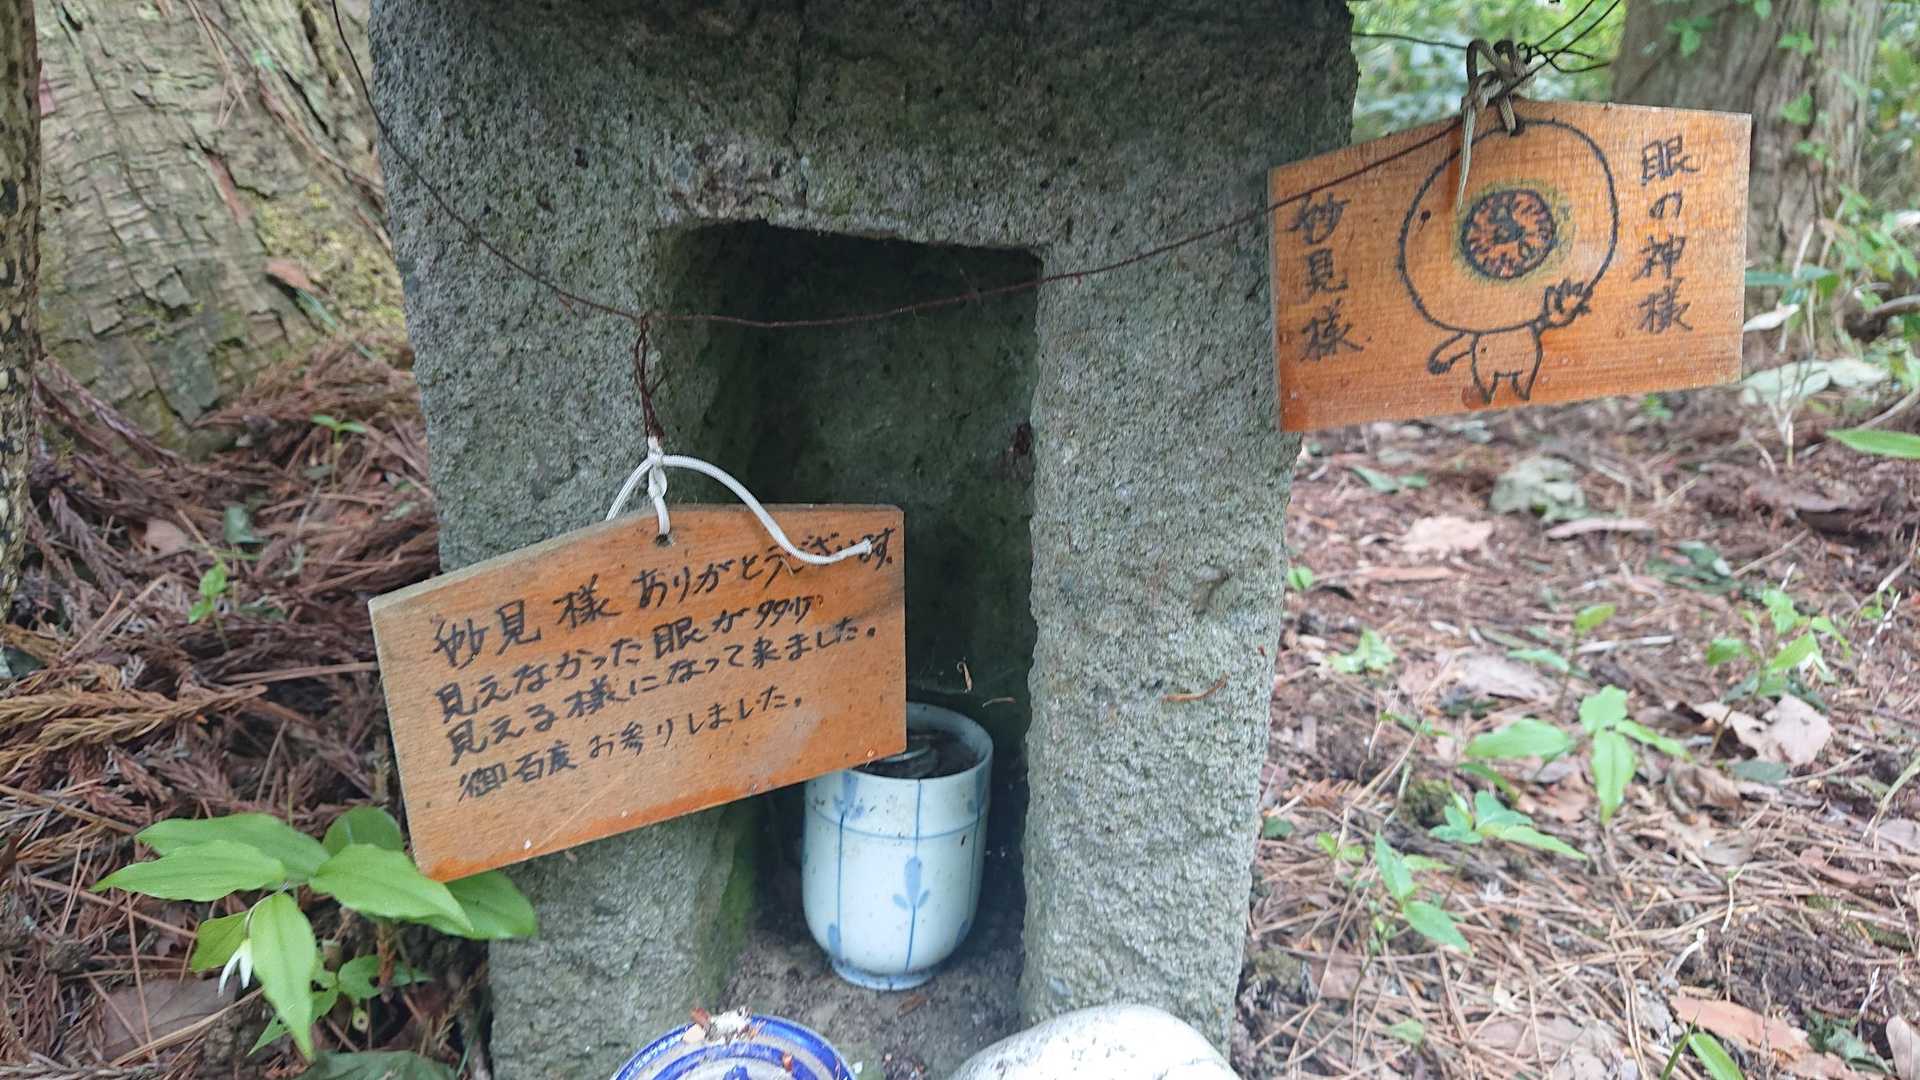 妙見様ありがとうございます。
見えなかった眼が99%
見える様になって来ました。
御百度お参りしました。
眼の神様
妙見様